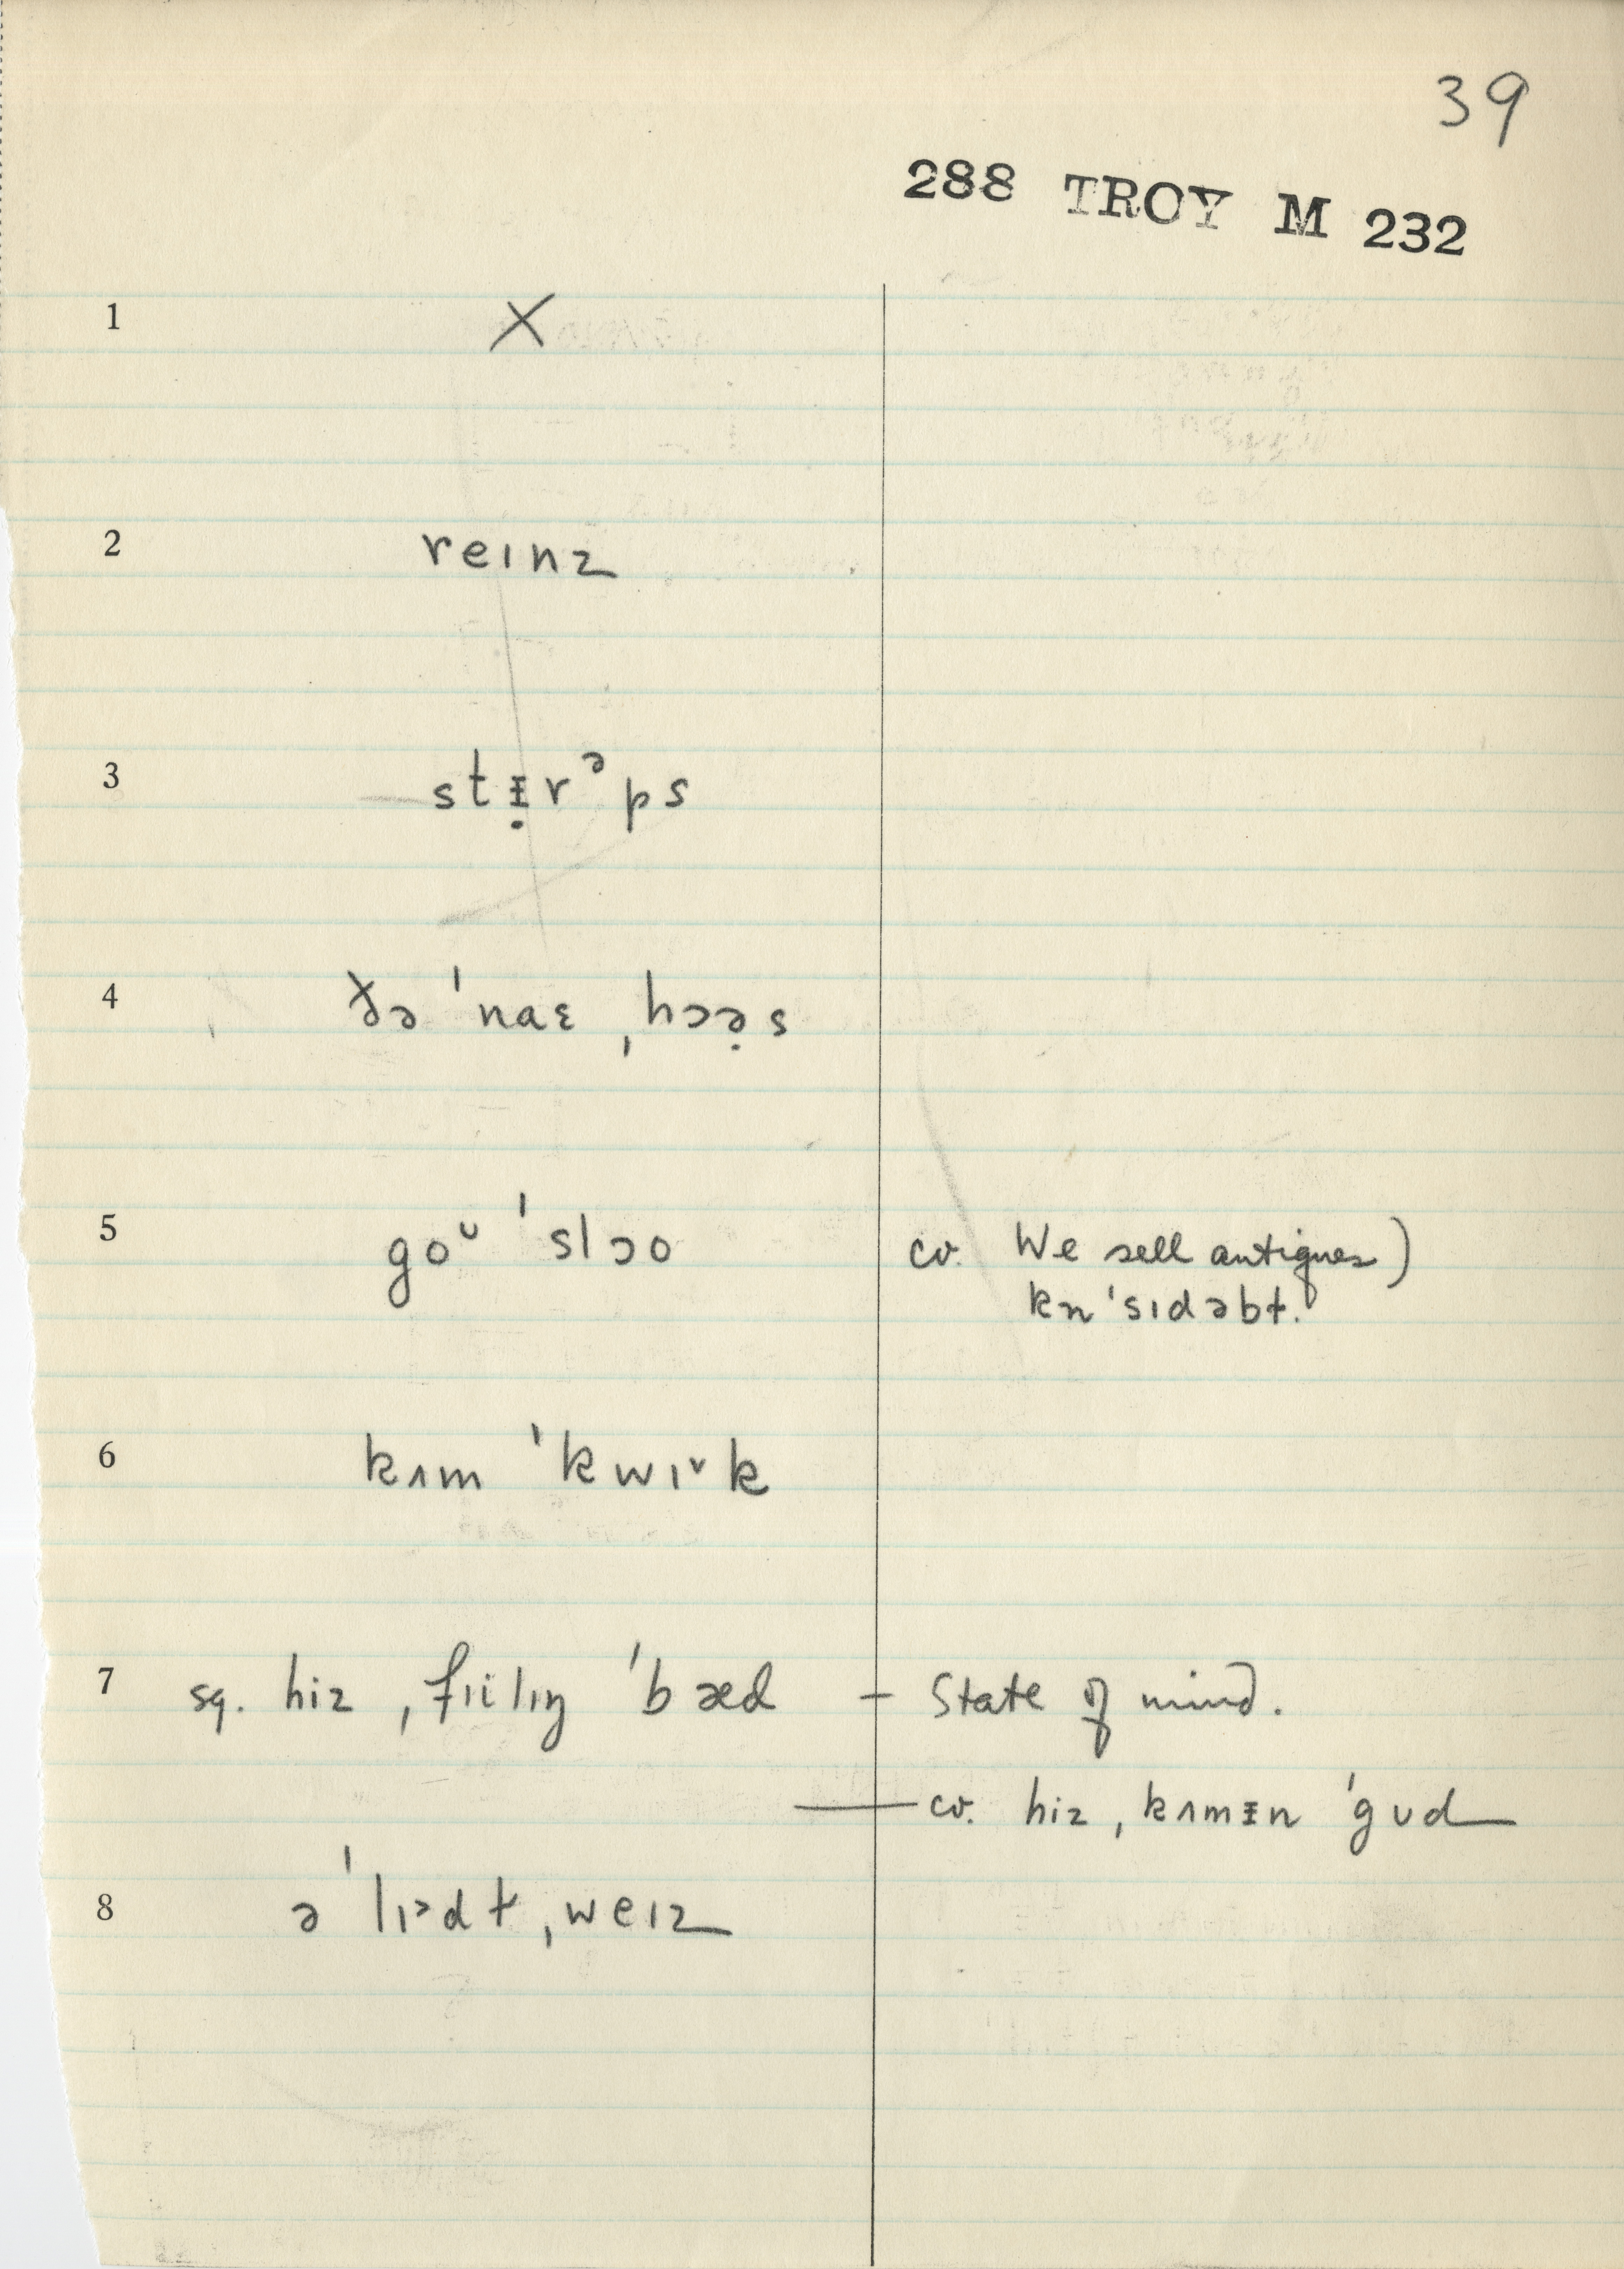 39
288 TROY M 232
1 X
2 reɪnz
3 stᵻ̣rᵊps
4 ðə ˈnaɛ ˌhɔə̣s
5 goᵁ ˈslɔo cv. We sell antiques)
kn ˈsɪdəbɫ.
6 kʌm ˈkwɪ˅k
7 sq. hiz ˌfɪilɪŋ ˈbæd – State of mind.
— cv. hiz ˌkʌmᵻn ˈgʊd
8 ə ˈlɪᵊdɫ ˌweɪz